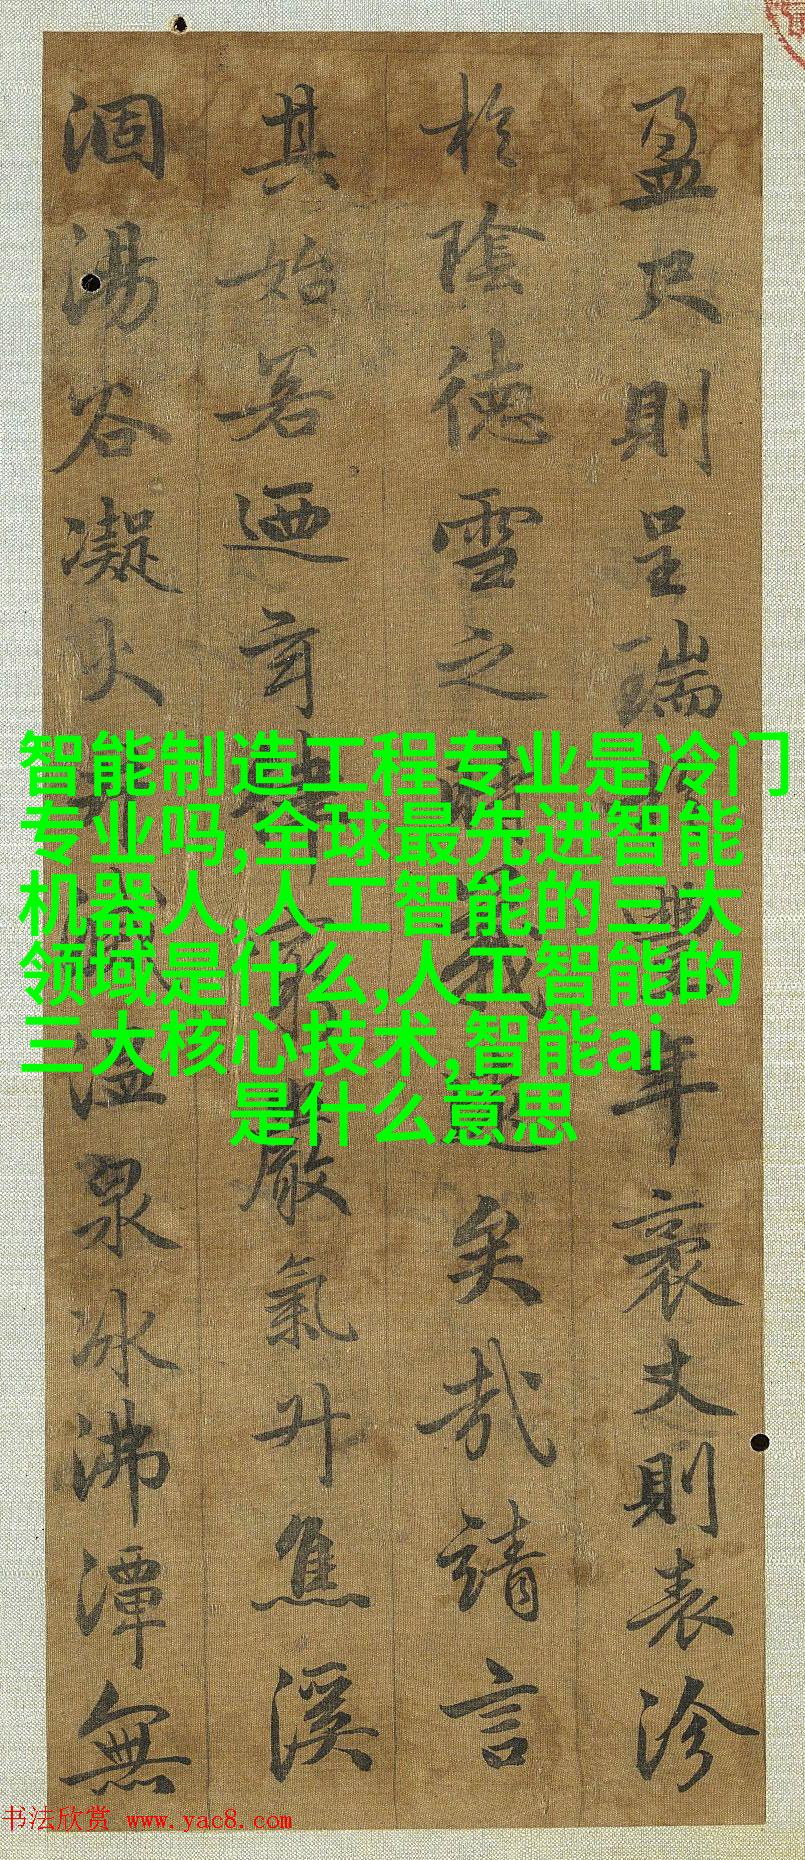 盈尺則呈瑞豐年袤丈則表沴
於陰德雪之時義遠矣哉請言
其始若迺玄律窮嚴氣升焦溪
涸湯谷凝火滅溫泉冰沸潭無
智能制造工程专业是冷门
专业吗,全球最先进智能
机器人,人工智能的三大
领域是什么,人工智能的
三大核心技术,智能ai
是什么意思
书法欣赏 www.yac8.com